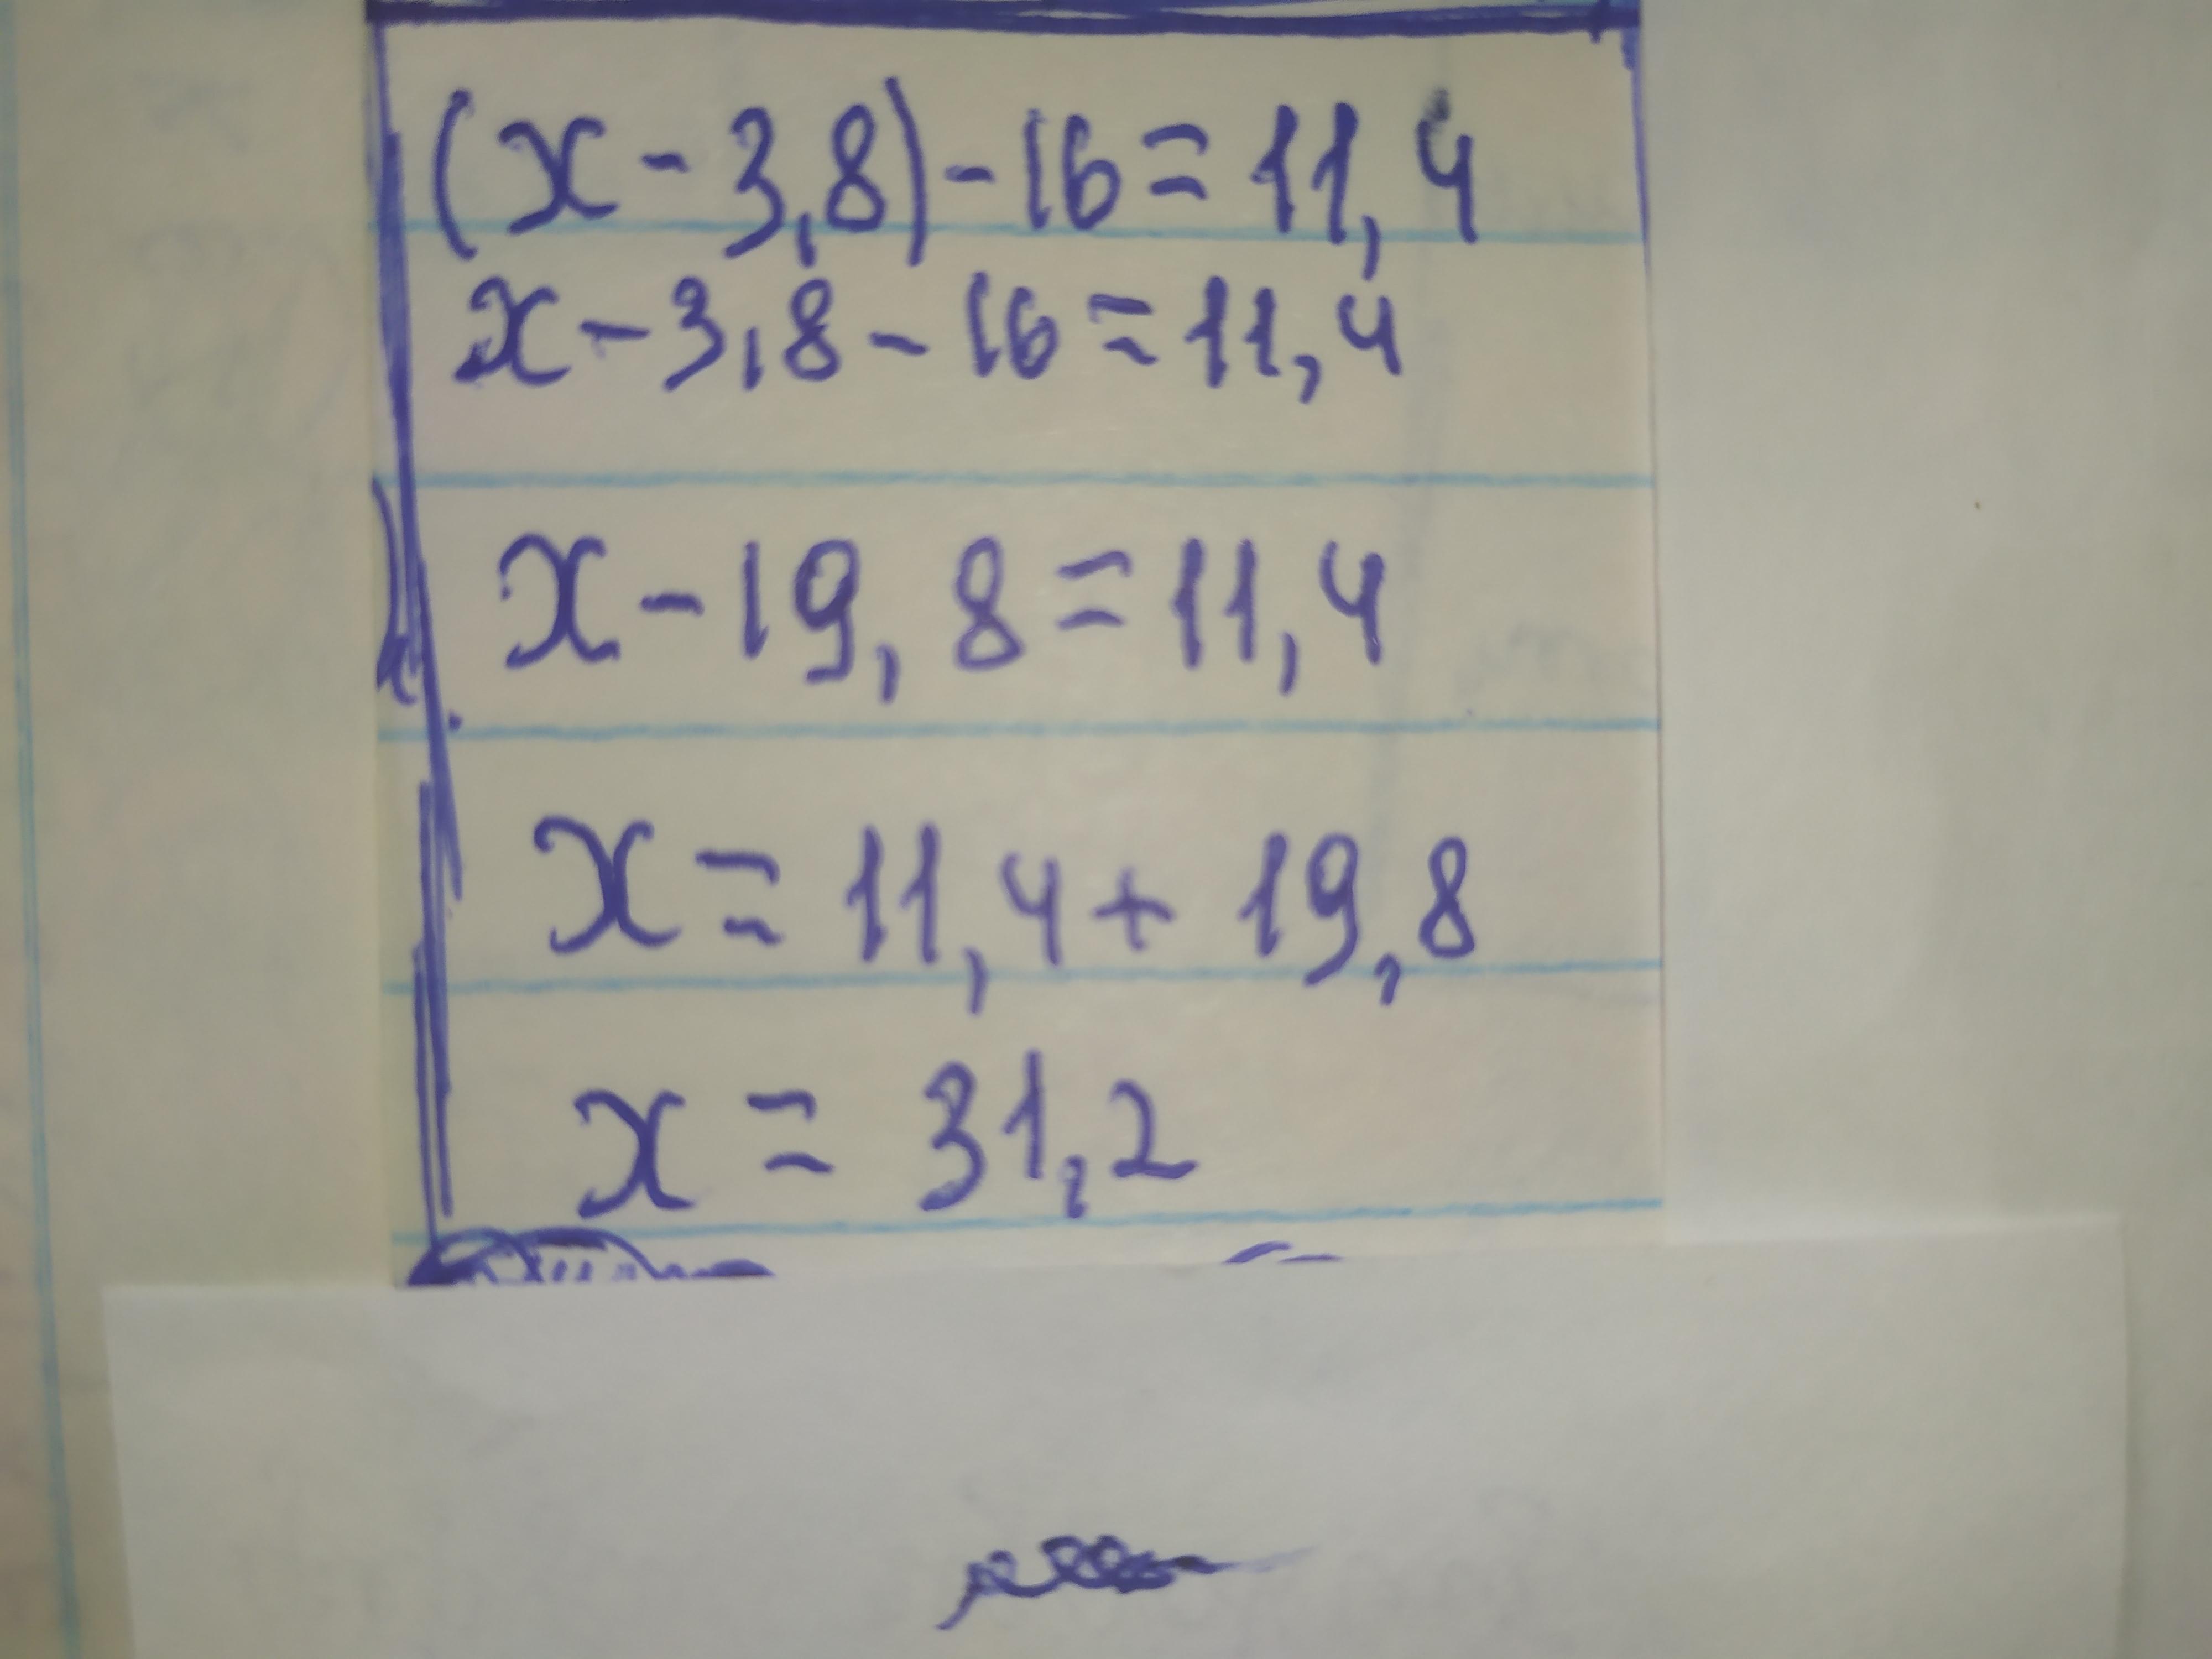 (x-3,8)-16=11,4
x-3,8-16=11,4
x-19,8=11,4
x=11,4+19,8
x=31,2